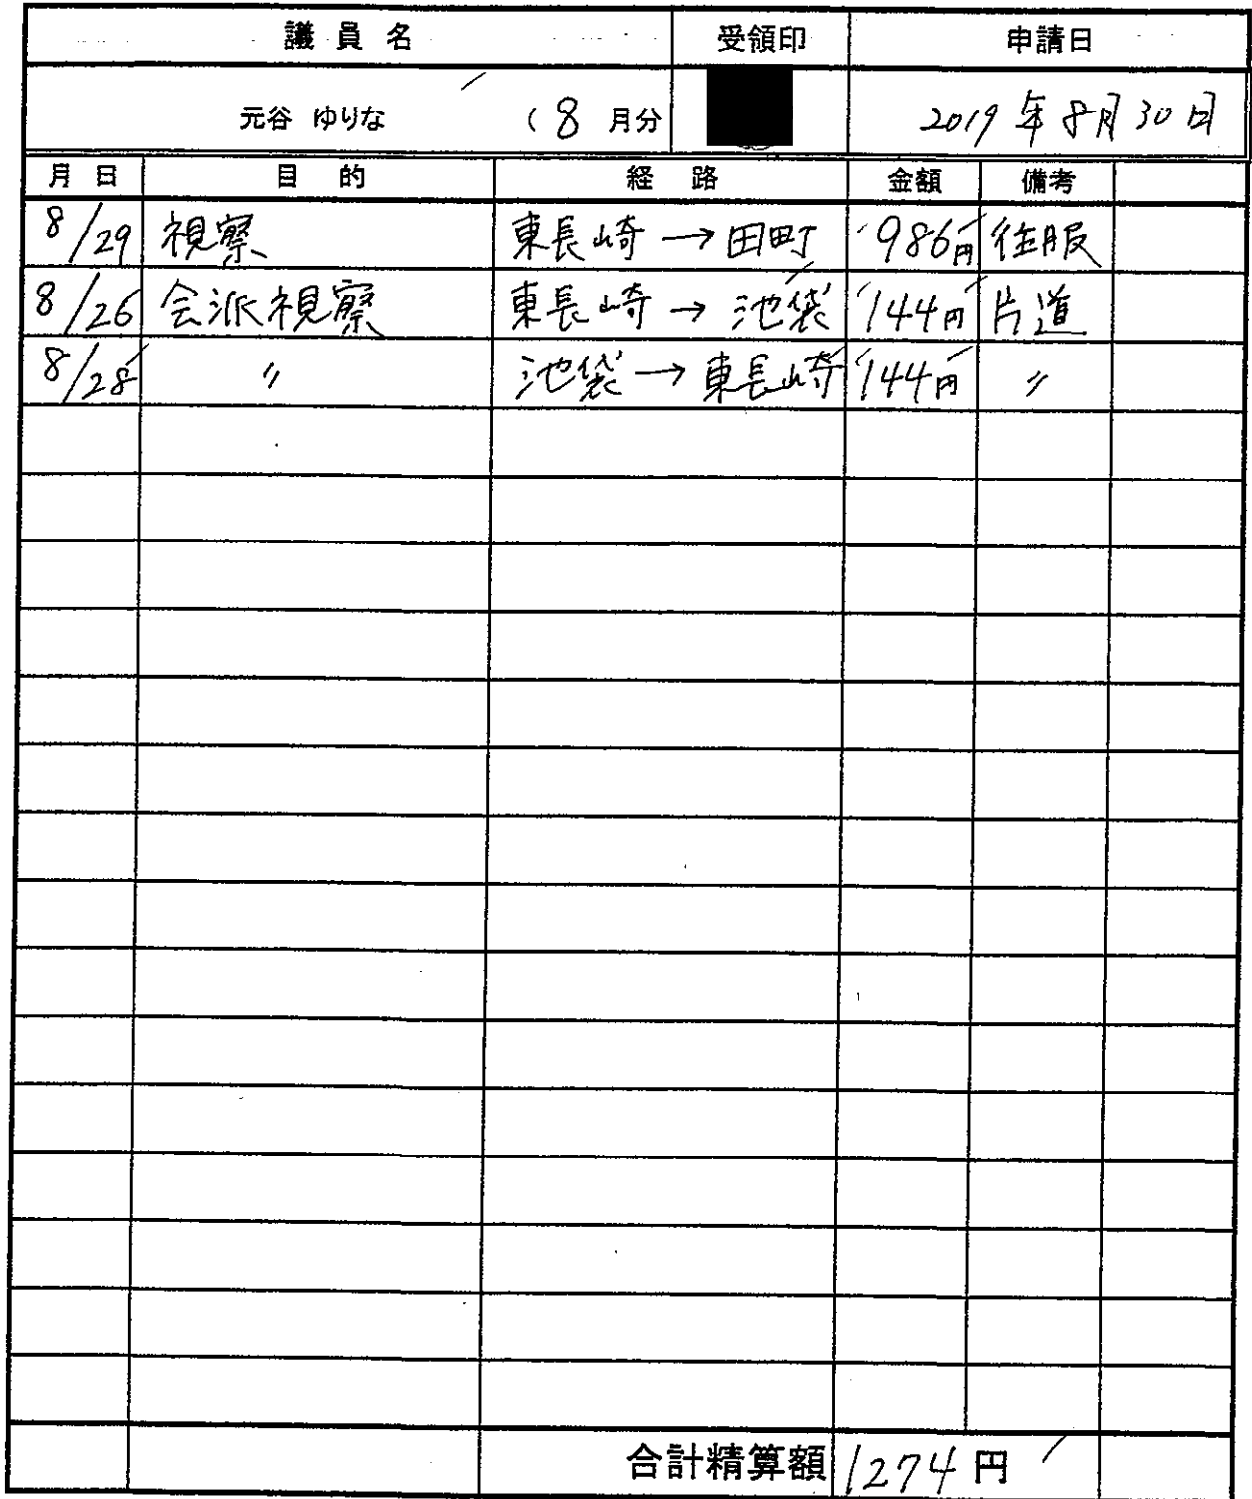 議員名 受領印 申請日
元谷 ゆりな (8 月分 2019年8月30日
月日 目的 経路 金額 備考
8/29 視察 東長崎→田町 986円 往服
8/26 会派視察 東長崎→池袋 144円 片道
8/28 〃 池袋→東長崎 144円 〃
合計精算額 1274円